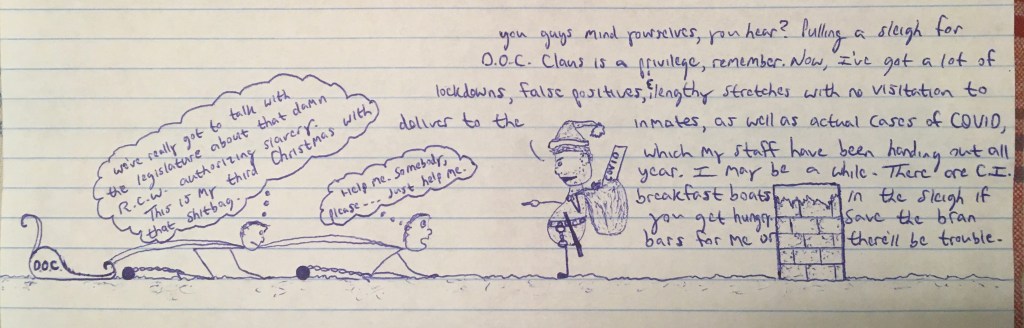 we've really got to talk with
the legislature about that damn
R.C.W. authorizing slavery.
This is my third Christmas with
that shitbag.
Help me. Somebody,
please... just help me.
D.O.C.
you guys mind yourselves, you hear? Pulling a sleigh for
D.O.C. Claus is a privilege, remember. Now, I've got a lot of
lockdowns, false positives, & lengthy stretches with no visitation to
deliver to the inmates, as well as actual cases of COVID,
which my staff have been handing out all
year. I may be a while. There are C.I.
breakfast boats in the sleigh if
you get hungry. Save the bran
bars for me or there'll be trouble.
COVID